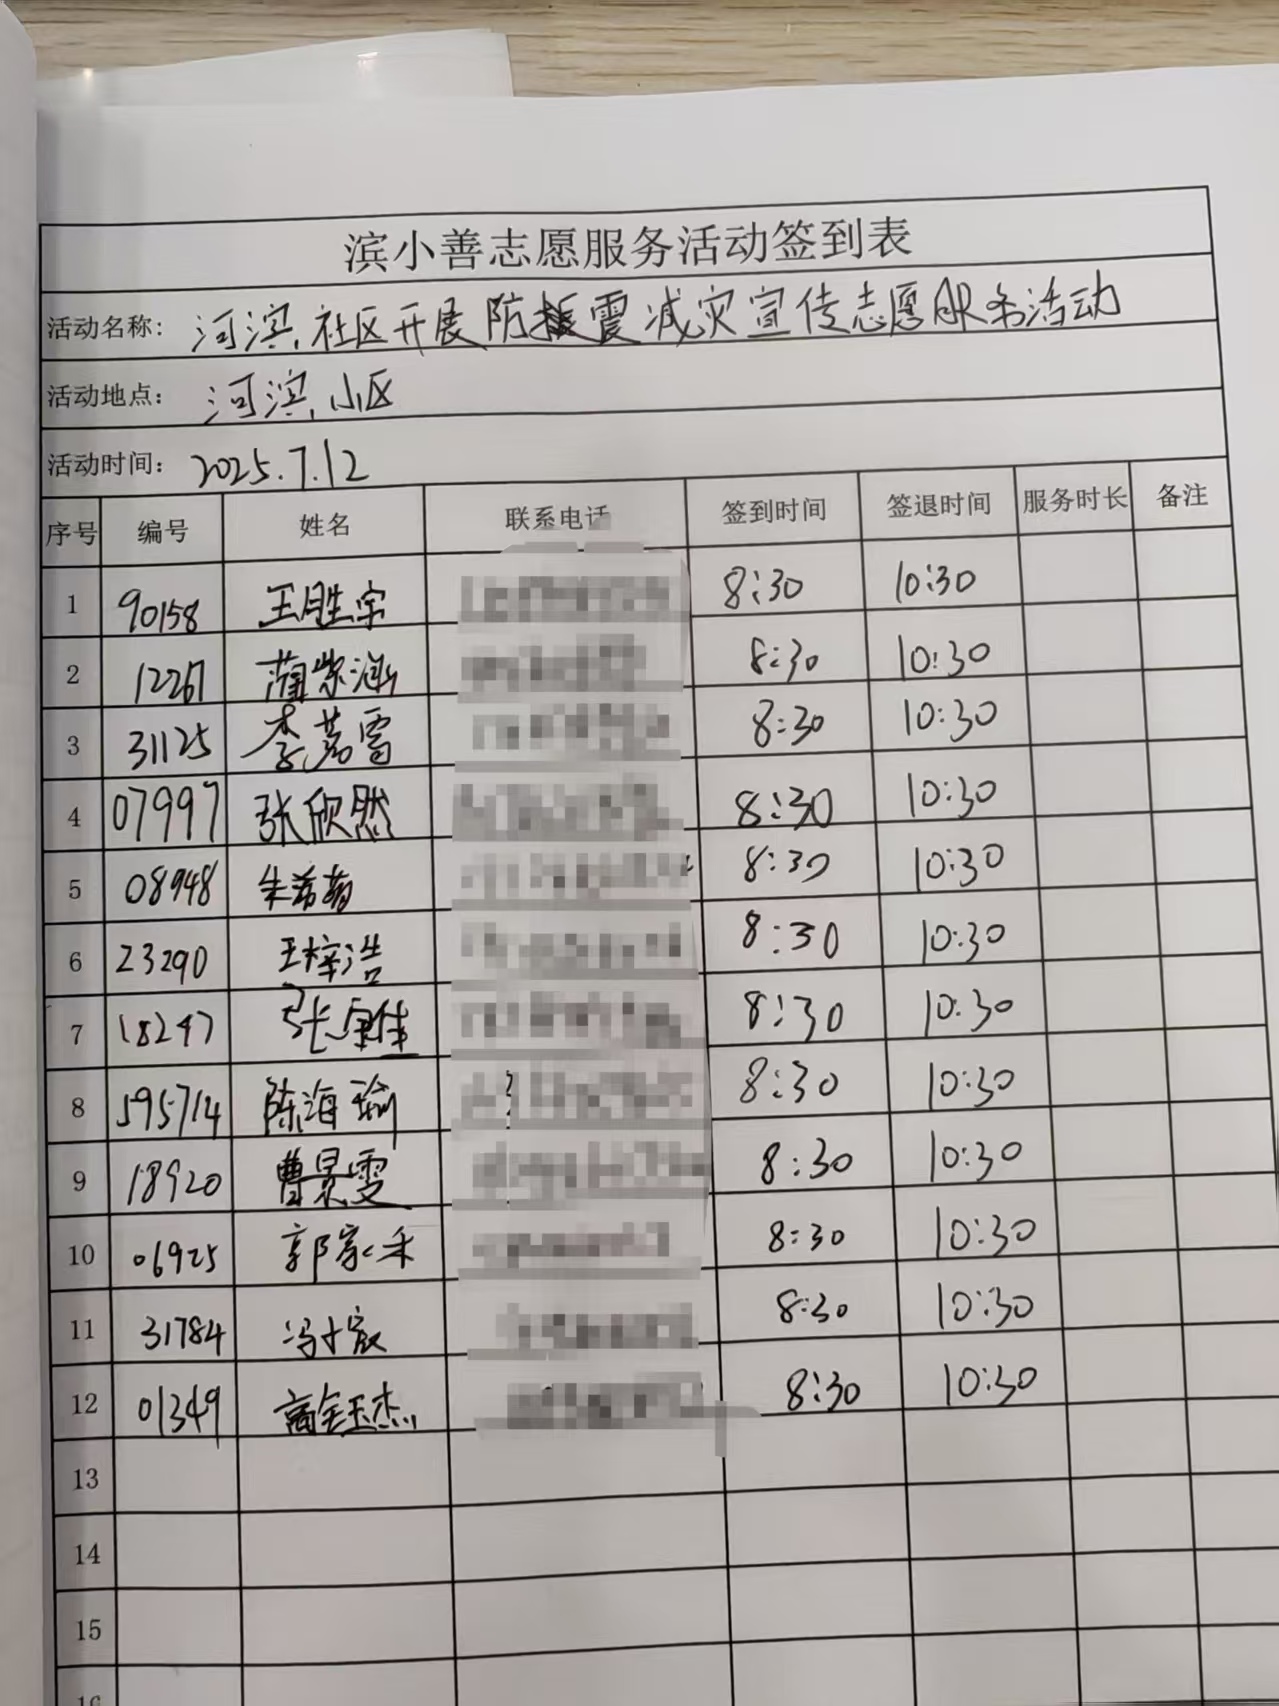 滨小善志愿服务活动签到表
活动名称: 河滨社区开展防振震减灾宣传志愿服务活动
活动地点: 河滨小区
活动时间: 2025.7.12
序号 编号 姓名 联系电话 签到时间 签退时间 服务时长 备注
1 90158 王胜宗 8:30 10:30
2 12267 蔺紫涵 8:30 10:30
3 31125 李茗雪 8:30 10:30
4 07997 张欣然 8:30 10:30
5 08948 朱希 8:30 10:30
6 23290 王梓浩 8:30 10:30
7 18247 张 8:30 10:30
8 595714 陈海瑜 8:30 10:30
9 18920 曹景雯 8:30 10:30
10 06925 郭家禾 8:30 10:30
11 31784 冯 8:30 10:30
12 01349 高钰杰 8:30 10:30
13
14
15
16